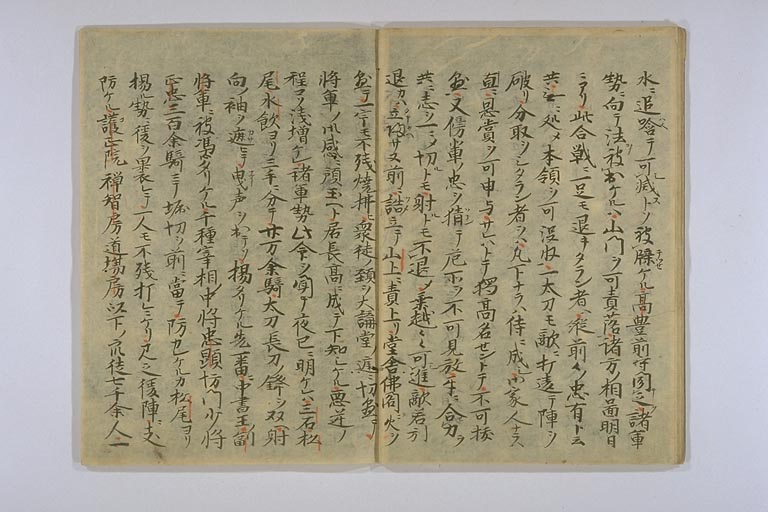 水ニ追啗テ可滅トゾ被牒ケル高豊前守
勢ニ向テ法被出ケルハ山門ヲ可責落諸方ノ相図明日
ニアリ此合戦ニ一足モ退キタラン者ハ縦前々忠有ト云
共ニ処メ本領ヲ可没収一太刀モ敵ニ打違テ陣ヲ
破リ分取ヲシタラン者ヲハ凡下ナラハ侍ニ成
直ニ恩賞ヲ可申与サレハトテ独高名セントテ不可抜
又傍輩ノ忠ヲ猜テ危所ヲ不可見放互ニ合力ヲ
共ニ志ヲ一ニメ切トモ射トモ不退メ乗越々々可進敵若引
退カハ立攻サス前ニ詰立テ山上ニ責上リ堂舎佛閣ニ火ヲ
テ一宇モ不残焼払ヒ衆徒ノ頚ヲ大講堂ノ庭ニ切
将軍ノ御感ニ居長高ニ成テ下知シケル悪逆ノ
程コソ浅増ケレ諸軍勢此命ヲ聞テ夜已ニ明ケハ三石松
尾水飲ヨリ三手ニ分テ廿万余騎太刀長刀ノ鋒ヲ双射
向ノ袖ヲ差テ曳声ヲ出テソ揚タリケル先一番ニ中書王ノ副
将軍ニ被馮タリケル千種宰相中将忠顕坊門少将
正忠三百余騎ニテ堀切ヲ前ニ當テ防カレケルカ松尾ヨリ
揚ル勢ニ後ヲ裹レテ一人モ不残打レニケリ是ヲ見テ後陣ニ支
防ケル護正院禅智房道場房以下ノ衆徒七千余人一